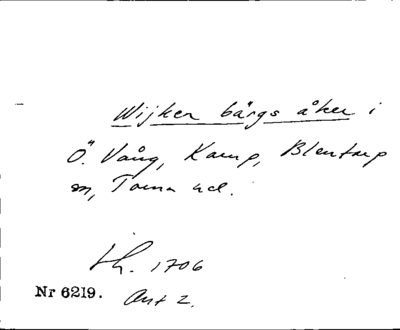 Wijker bärgs åker i
Ö. Vång, Kamp, Blentarp
sn, Torna hd.
Lh. 1706
Nr 6219. Ant 2.